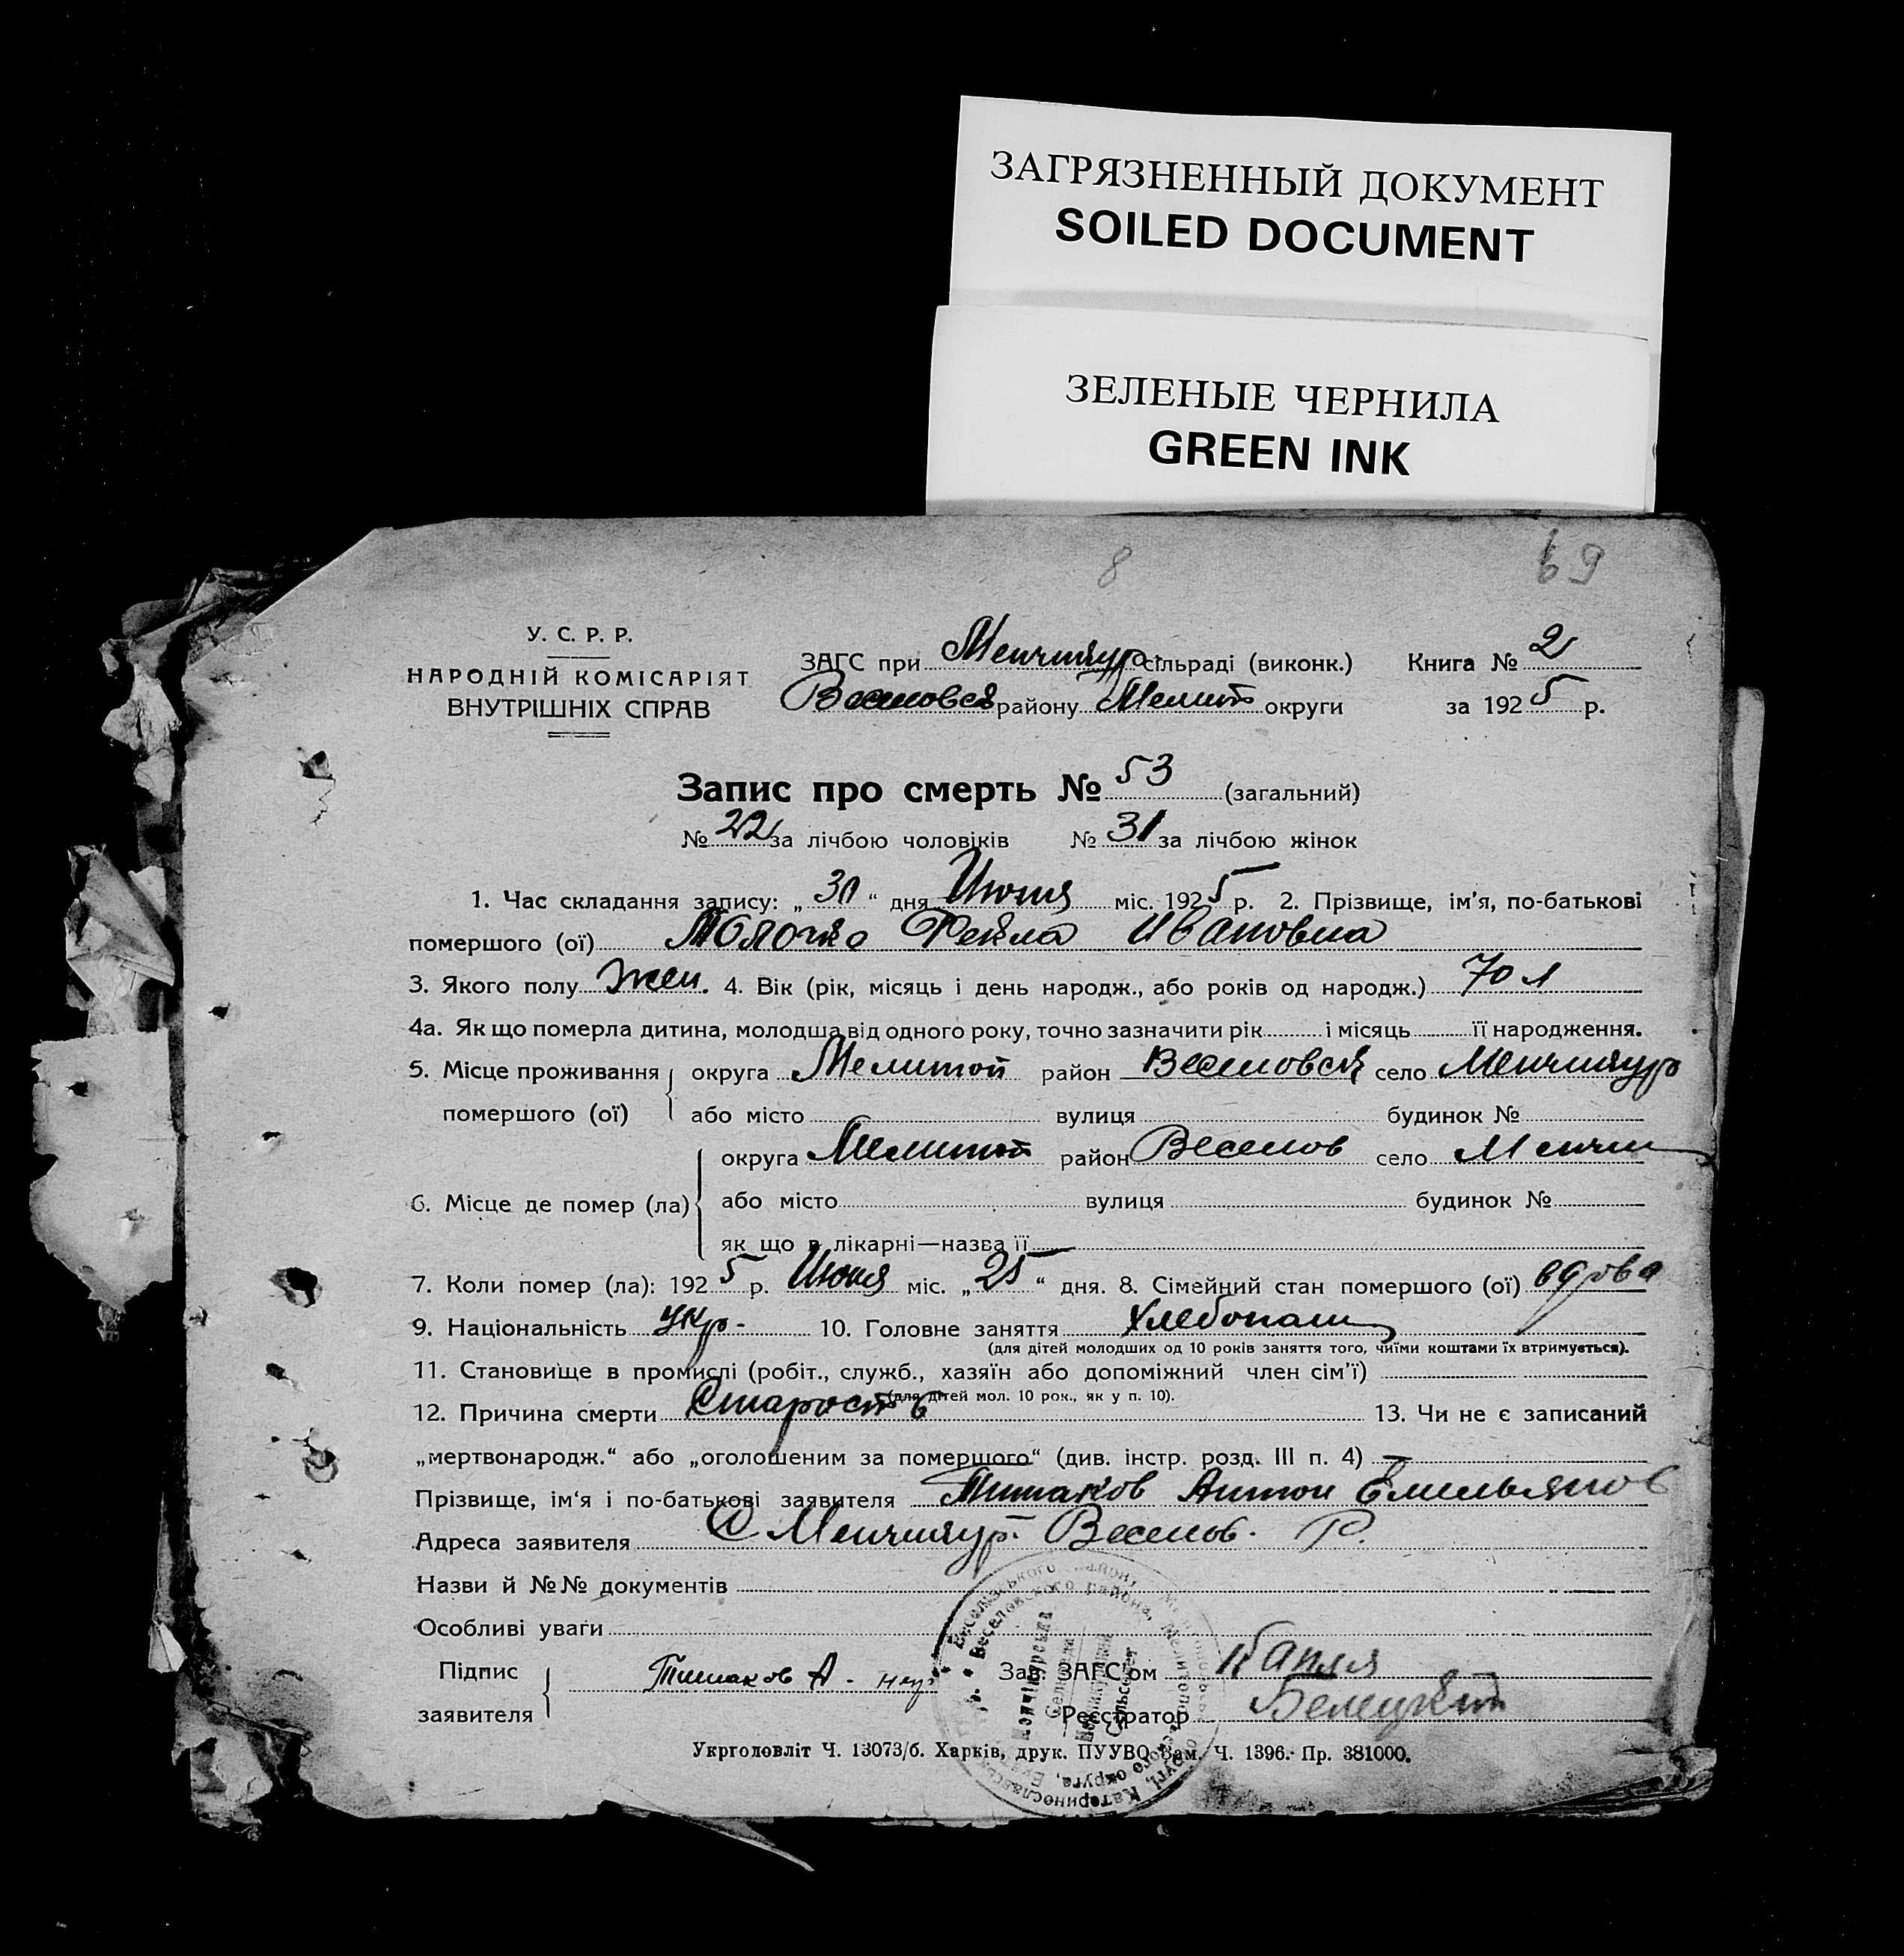 ЗАГРЯЗНЕННЫЙ ДОКУМЕНТ
SOILED DOCUMENT
ЗЕЛЕНЫЕ ЧЕРНИЛА
GREEN INK
8 69
У. С. Р. Р.
НАРОДНІЙ КОМІСАРІЯТ
ВНУТРІШНІХ СПРАВ
ЗАГС при Менчикур сільраді (виконк.) Книга № 2
Веселовск району Мелит округи за 1925 р.
Запис про смерть № 53 (загальний)
№ 22 за лічбою чоловіків № 31 за лічбою жінок
1. Час складання запису: „30“ дня Июня міс. 1925 р. 2. Прізвище, ім'я, по-батькові
помершого (ої) Фекла Ивановна
3. Якого полу Жен. 4. Вік (рік, місяць і день народж., або років од народж.) 70 л
4а. Як що померла дитина, молодша від одного року, точно зазначити рік і місяць її народження.
5. Місце проживання помершого (ої) округа Мелитоп район Веселовск село Менчикур
або місто вулиця будинок №
6. Місце де помер (ла) округа Мелитоп район Веселов село Менчи
або місто вулиця будинок №
як що в лікарні—назва її —
7. Коли помер (ла): 1925 р. Июня міс. „25“ дня. 8. Сімейний стан помершого (ої) вдова
9. Національність Укр. 10. Головне заняття Хлебопаш
(для дітей молодших од 10 років заняття того, чиїми коштами їх втримується).
11. Становище в промислі (робіт., служб., хазяїн або допоміжний член сім'ї)
(для дітей мол. 10 рок., як у п. 10).
12. Причина смерти Старость 13. Чи не є записаний
„мертвонародж.“ або „оголошеним за помершого“ (див. інстр. розд. III п. 4) —
Прізвище, ім'я і по-батькові заявителя Тишаков Антон Емельянов
Адреса заявителя С Менчикур. Веселов. Р.
Назви й №№ документів
Особливі уваги
Підпис заявителя Тишаков А. Зав. ЗАГС'ом Капля
Реєстратор Белецкий
Укрголовліт Ч. 13073/б. Харків, друк. ПУУВО Зам. Ч. 1396. Пр. 381000.